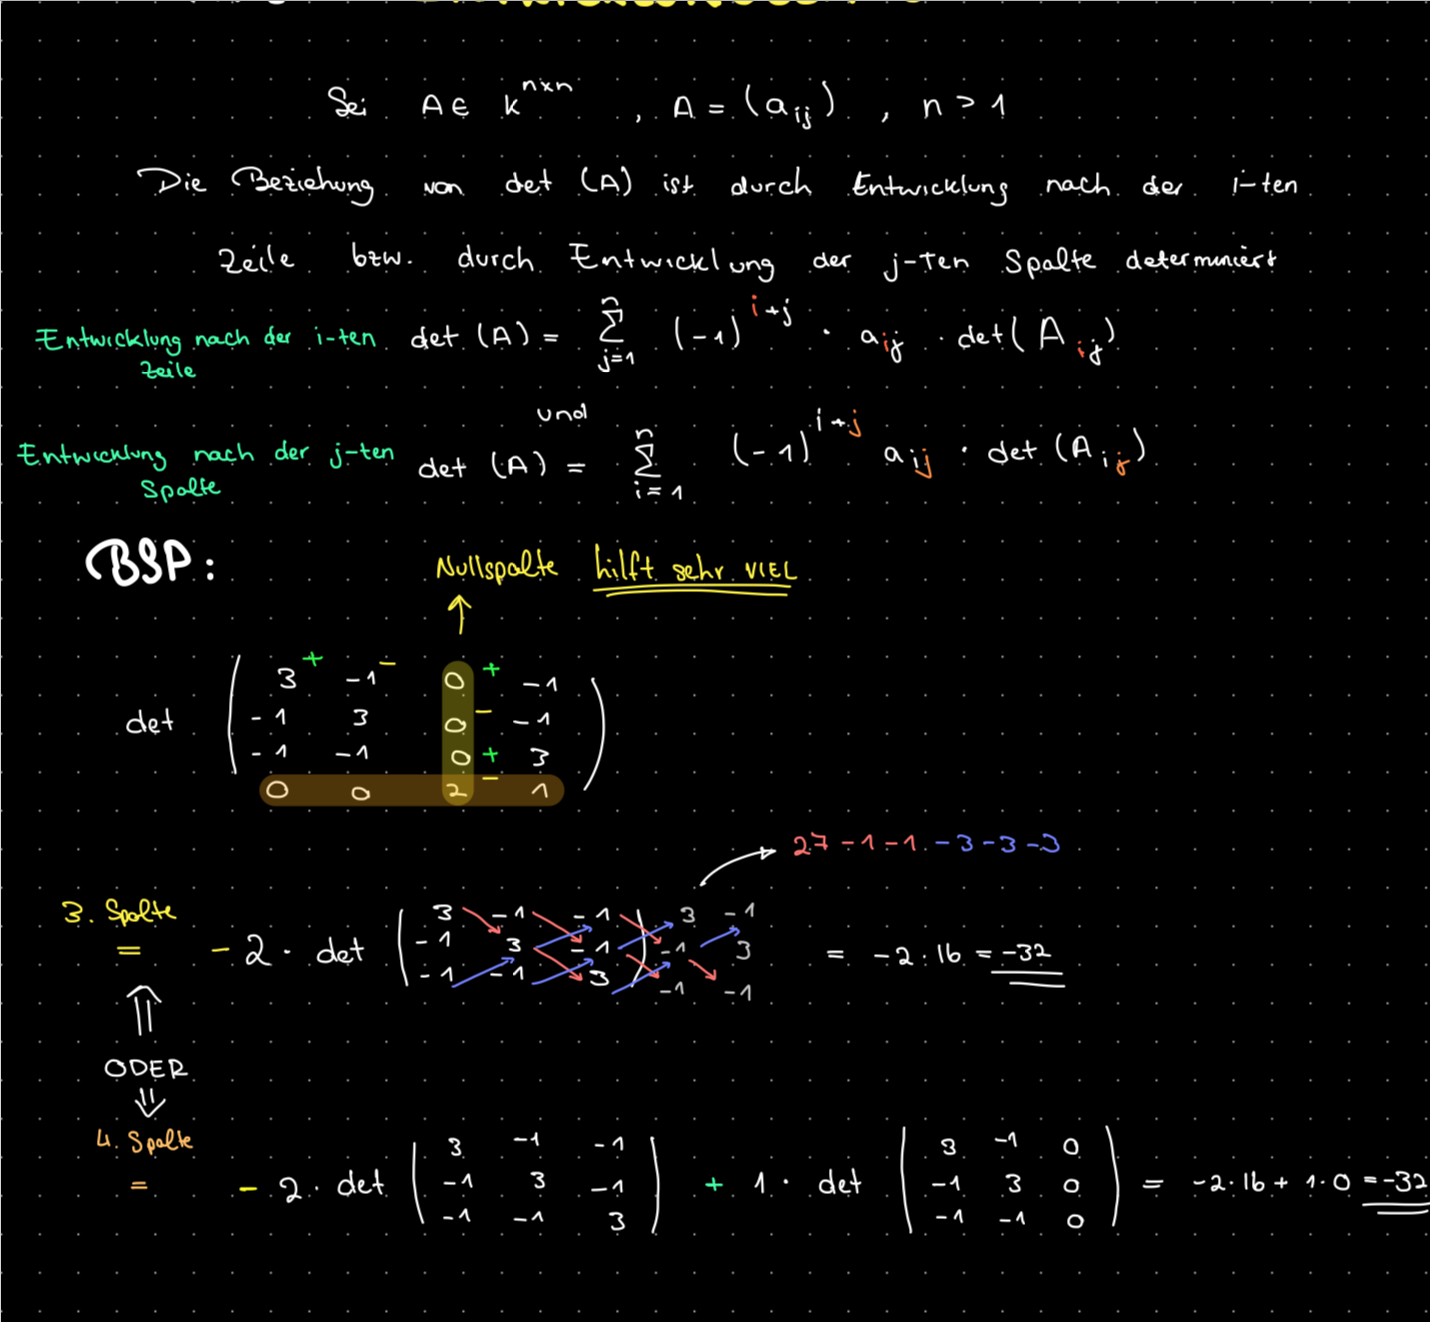 Sei A ∈ K^{n×n} , A = (a_{ij}) , n > 1
Die Beziehung von det (A) ist durch Entwicklung nach der i-ten
Zeile bzw. durch Entwicklung der j-Ten Spalte determiniert
Entwicklung nach der i-ten Zeile det (A) = \sum_{j=1}^{n} (-1)^{i+j} · a_{ij} · det( A_{ij} )
und
Entwicklung nach der j-ten Spalte det (A) = \sum_{i=1}^{n} (-1)^{i+j} a_{ij} · det (A_{ij})
BSP:
Nullspalte hilft sehr VIEL
↑
3 + -1 - 0 + -1
det ( -1 3 0 - -1 )
-1 -1 0 + 3
0 0 2 - 1
→ 27 -1 -1 -3 -3 -3
3. Spalte
3 -1 -1 3 -1
= -2 · det ( -1 3 -1 ) -1 3 = -2·16 = -32
-1 -1 3 -1 -1
⇑
ODER
⇓
4. Spalte
3 -1 -1 3 -1 0
= -2 · det ( -1 3 -1 ) + 1 · det ( -1 3 0 ) = -2·16 + 1·0 = -32
-1 -1 3 -1 -1 0